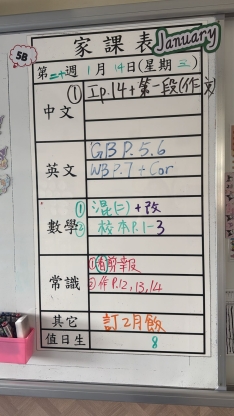 5B
家課表
January
第二十週 1月14日(星期三)
中文
① 工p.14+第一段(作文)
英文
GB P.5,6
WB P.7 + Cor
數學
① 混(二)+改
② 校本P.1-3
常識
剪報
② 作P.12,13,14
其它
訂2月飯
值日生
8